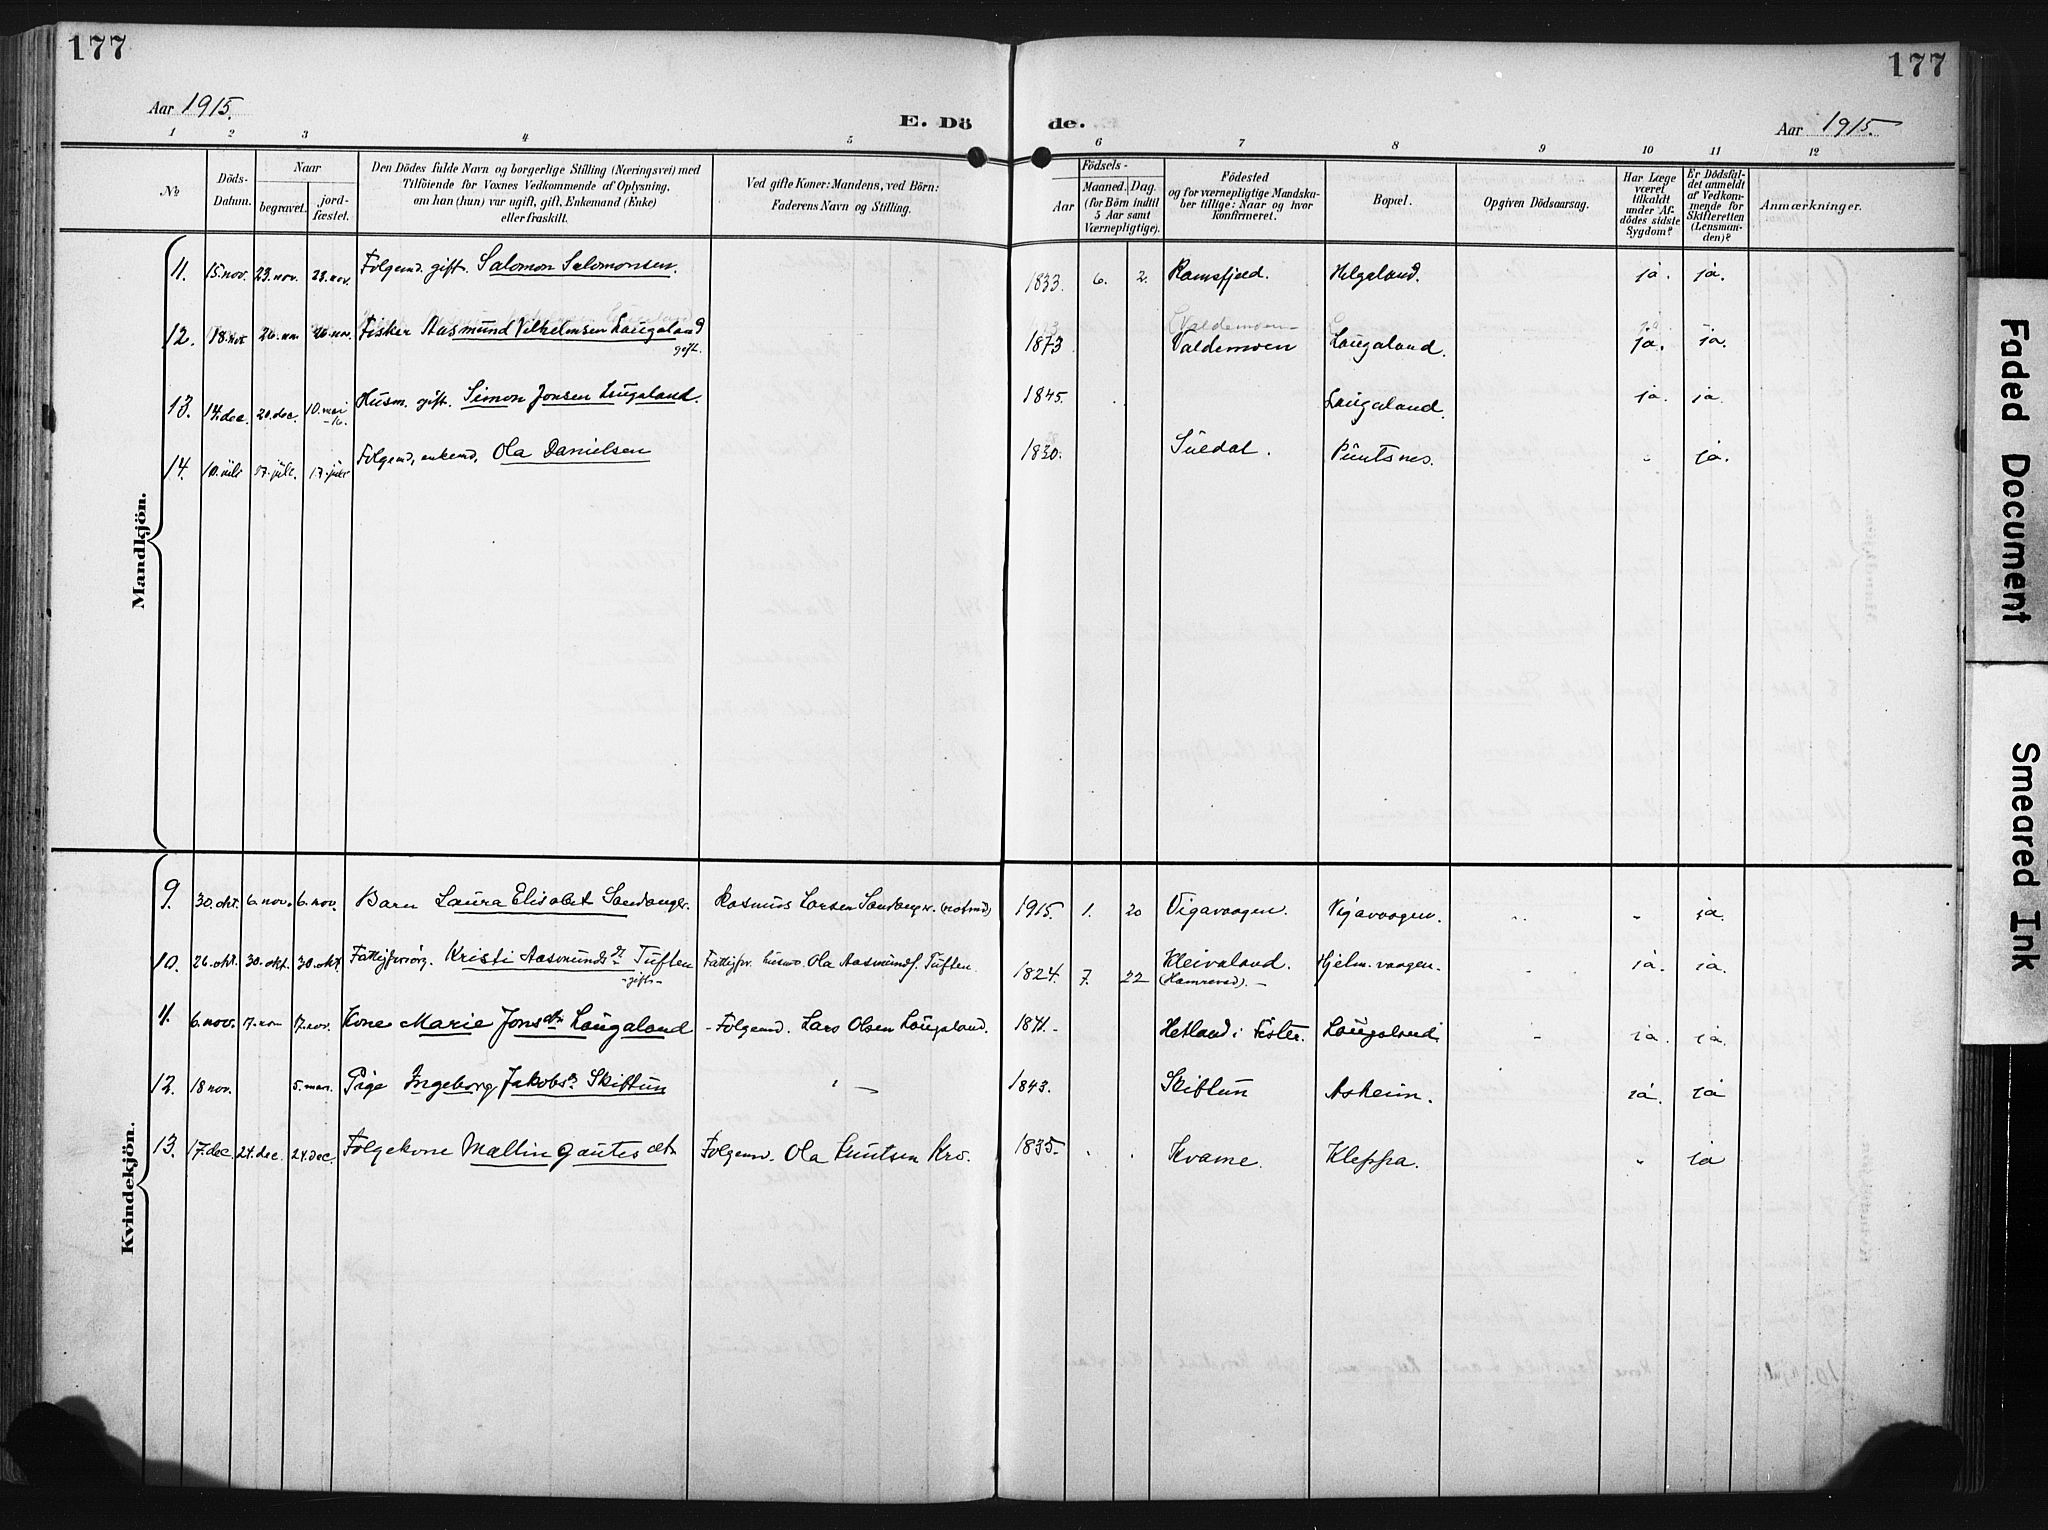 177
177
Aar 1915.
E. Dö
de.
Aar 1915.
1 2 3 4 5 6 7 8 9 10 11 12
No
Döds-Datum.
Naar
begravet.
jord-fæstet.
Den Dödes fulde Navn og borgerlige Stilling (Næringsvei) med
Tilföiende for Voxnes Vedkommende af Oplysning,
om han (hun) var ugift, gift, Enkemand (Enke)
eller fraskilt.
Ved gifte Koner: Mandens, ved Börn:
Faderens Navn og Stilling.
Födsels-
Aar
Maaned.
Dag.
(for Börn indtil
5 Aar samt
Værnepligtige).
Födested
og for værnepligtige Mandska-
ber tillige: Naar og hvor
konfirmeret.
Bopæl.
Opgiven Dödsaarsag.
Har Læge
været
tilkaldt
under Af-
dödes sidste
Sygdom?
Er Dödsfal-
det anmeldt
af Vedkom-
mende for
Skifteretten
(Lensman-
den)?
Anmærkninger.
Mandkjön.
11. 15. nov. 23. nov. 23. nov. Folgemd. gift. Salomon Salomonsen. 1833. 6. 2. Ramsfjeld. Helgaland. ja. ja.
12. 18. nov 26. nov 26. nov. Fisker Aasmund Vilhelmsen Laugaland gift. 1873 Valdemoen Laugaland. ja. ja.
13. 14. dec. 20. dec. 10. mai -16. Husm. gift. Simon Jonsen Laugaland. 1845. Laugaland. ja. ja.
14. 10. juli 17. juli. 17. juli Folgemd, enkemd, Ola Danielsen 1830. Suldal. Puntsnes. " ja.
Kvindekjön.
9. 30. okt. 6. nov. 6. nov. Barn Laura Elisabet Sandanger. Rasmus Larsen Sandanger. 1915. 1. 20 Vigavaagen. Vigavaagen. " ja
10. 26. okt. 30. okt. 30. okt. Fattigforsørg. Kristi Aasmundsdr Tuften -gift- Fattigfor. husm. Ola Aasmunds. Tuften. 1824. 7. 22 Kleivaland. Hjelm.vaagen. ja. ja.
11. 6. nov. 17. nov 17. nov. Kone Marie Jonsdtr Laugaland - Folgemd. Lars Olsen Laugaland. 1841. - Hetland i Fister. Laugaland. ja. ja.
12. 18 nov. 5. mars. Pige Ingeborg Jakobsd. Skiftun " — 1843. Skiftun Asheim. ja. ja
13. 17. dec 24. dec. 24. dec. Folgekone Mallin Gautesdtr Folgem. Ola Knutsen Kro. 1835. Kvame. Kleppa. " ja
Faded Document
Smeared Ink